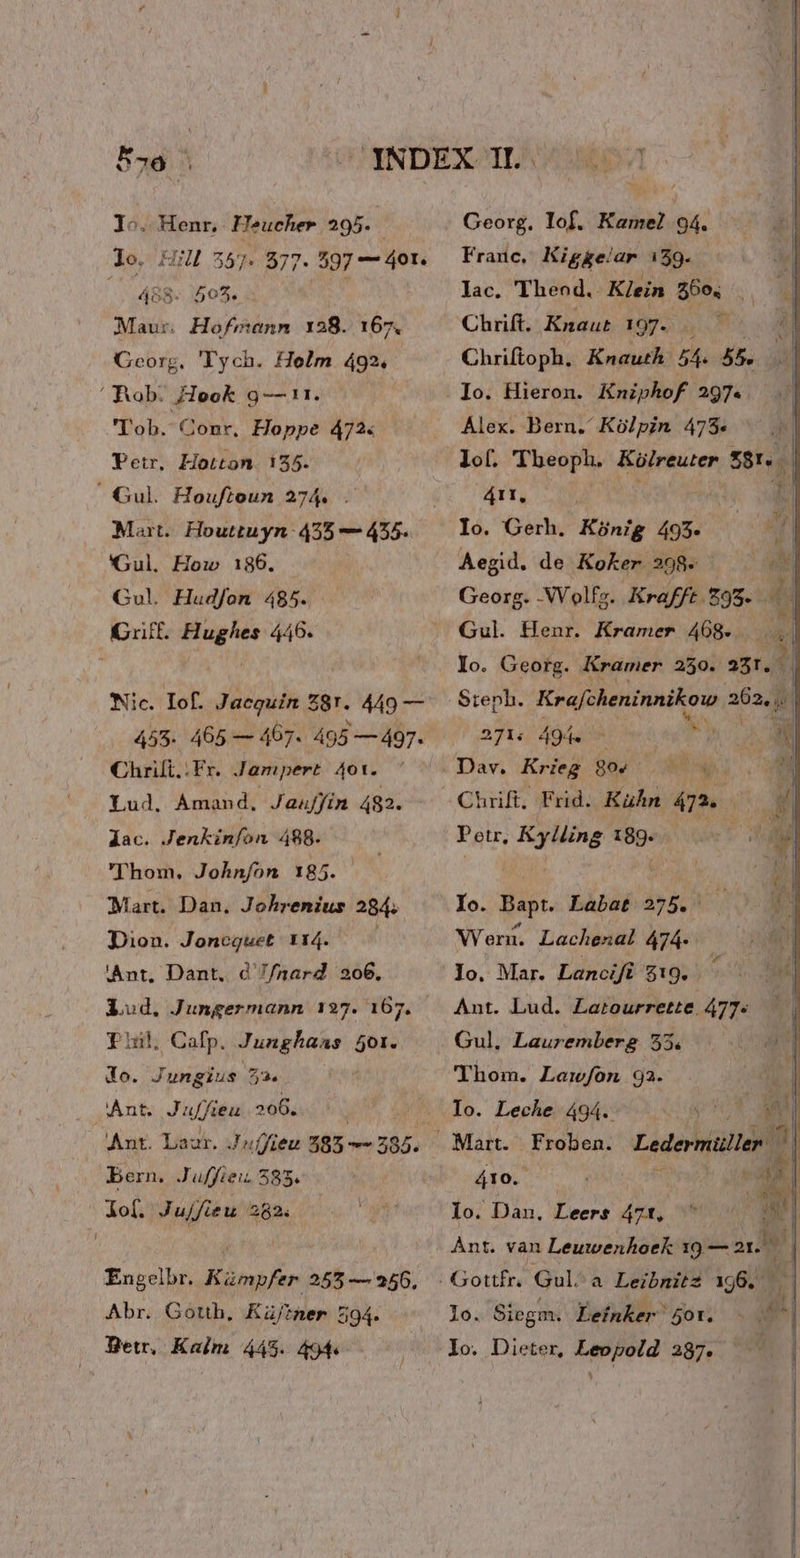 570 INDEX II.
Io. Henr. Heucher 295.
Io. Hill 367. 377. 397 — 401.
488. 503.
Maur. Hofmann 128. 167.
Georg. Tych. Holm 492.
Rob. Hook 9 — 11.
Tob. Conr. Hoppe 472.
Petr. Hotton 135.
Gul. Houſtoun 274.
Mart. Houttuyn 433 — 435.
Gul. How 186.
Gul. Hudſon 485.
Griff. Hughes 446.
Nic. Ioſ. Jacquin 381. 449 —
453. 465 — 467. 495 — 497.
Chriſt. Fr. Jampert 401.
Lud. Amand. Jauſſin 482.
Iac. Jenkinſon 488.
Thom. Johnſon 185.
Mart. Dan. Johrenius 284.
Dion. Joncquet 114.
Ant. Dant. d'Iſnard 206.
Lud. Jungermann 127. 167.
Phil. Caſp. Junghans 501.
Io. Jungius 32.
Ant. Juſſieu 206.
Ant. Laur. Juſſieu 383 — 385.
Bern. Juſſieu 383.
Ioſ. Juſſieu 282.
Engelbr. Kämpfer 253 — 256.
Abr. Gotth. Käſtner 394.
Petr. Kalm 443. 494.
Georg. Ioſ. Kamel 94.
Franc. Kiggelar 139.
Iac. Theod. Klein 360.
Chriſt. Knaut 197.
Chriſtoph. Knauth 54. 55.
Io. Hieron. Kniphof 297.
Alex. Bern. Kölpin 473.
Ioſ. Theoph. Kölreuter 381.
411.
Io. Gerh. König 493.
Aegid. de Koker 298.
Georg. Wolfg. Krafft 393.
Gul. Henr. Kramer 468.
Io. Georg. Kramer 230. 231.
Steph. Kraſcheninnikow 262.
271. 494.
Dav. Krieg 80.
Chriſt. Frid. Kühn 472.
Petr. Kylling 189.
Io. Bapt. Labat 275.
Wern. Lachenal 474.
Io. Mar. Lanciſi 319.
Ant. Lud. Latourrette 477.
Gul. Lauremberg 33.
Thom. Lawſon 92.
Io. Leche 494.
Mart. Froben. Ledermüller
410.
Io. Dan. Leers 471.
Ant. van Leuwenhoek 19 — 21.
Gottfr. Gul. a Leibnitz 196.
Io. Siegm. Leinker 501.
Io. Dieter. Leopold 287.